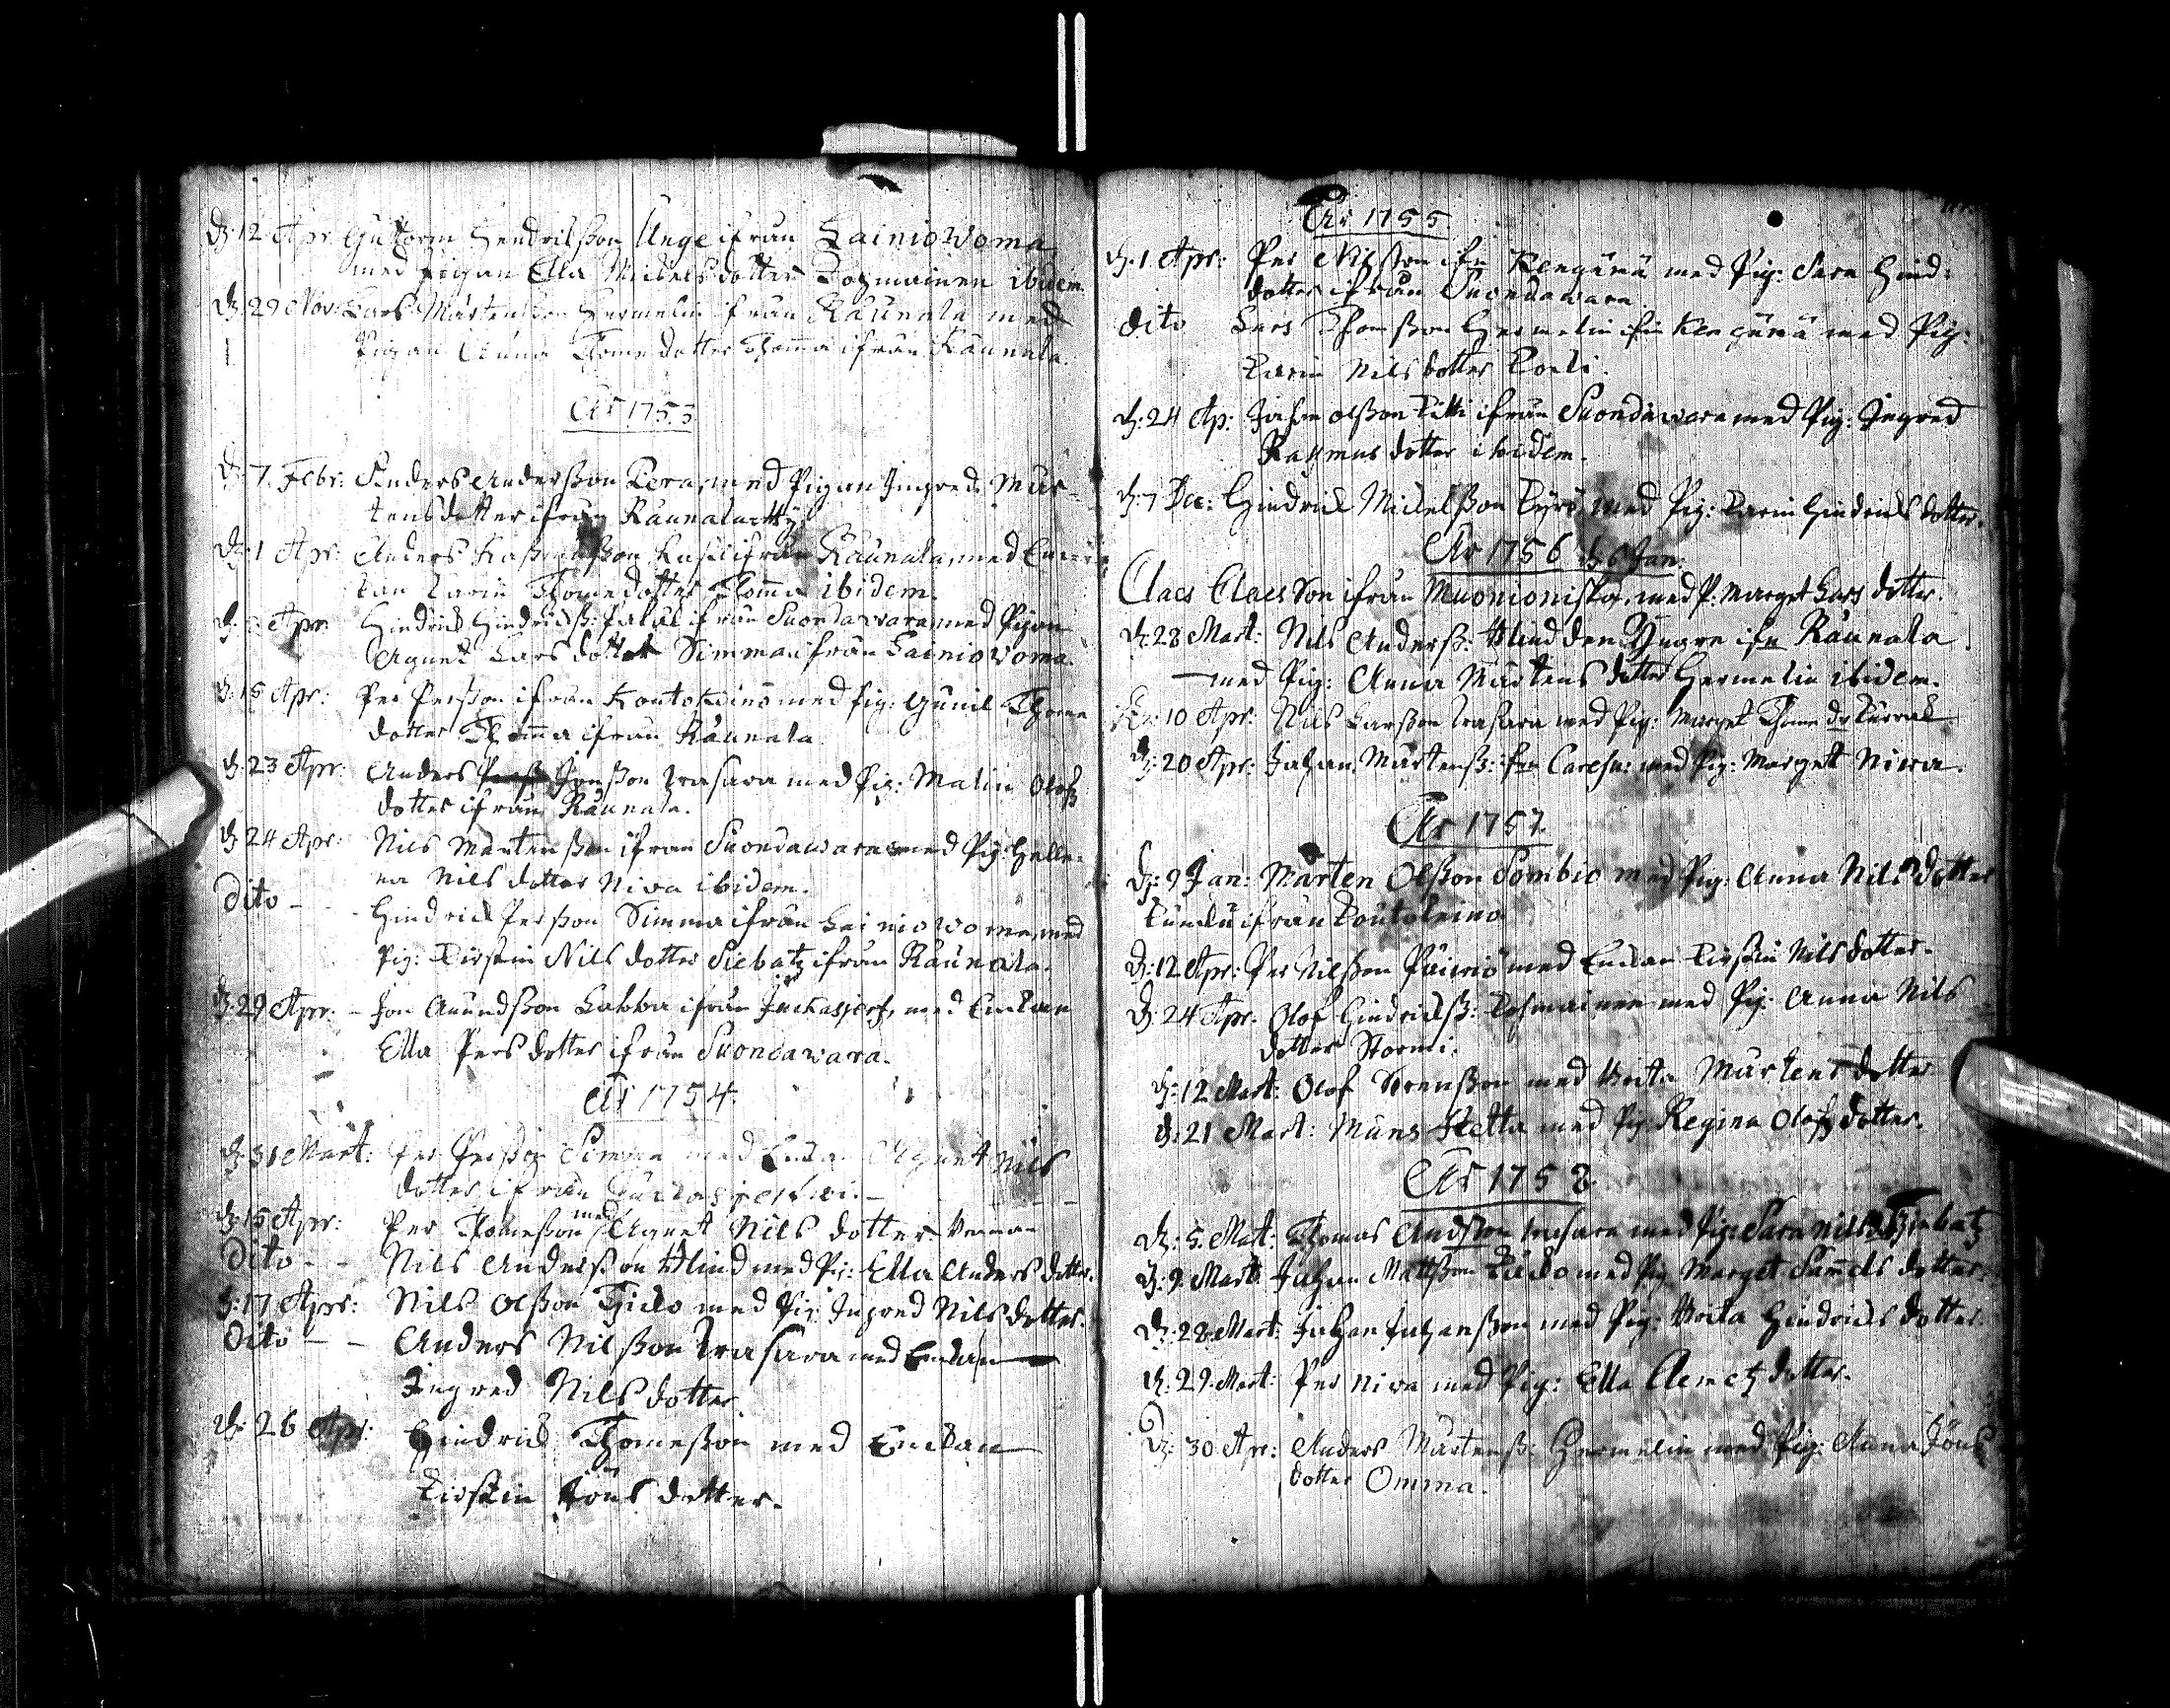 D. 12 Apr. Guttorm Hendrikßon Unge ifrån Lainiowoma
med pigan Ella Mickelsdotter Tosmainen ibidem.
D. 29 Nov: Lars Mårtenßon Hermelin ifrån Raunala med
Pigan Anna Thomedotter Thoma ifrån Raunala.
År 1753
D. 7. Febr: Anders Anderßon Pera, med Pigan Ingred Mår-
tensdotter ifrån
D. 1 Apr: Anders ifrån Raunala, med Enc
kan Karin Thomedotter Thomma ibidem.
D. Apr. Hindrick Hindricß: ifrån Suondawara, med Pigan
Agnet Lars dotter Simma ifrån Lainiovoma.
D. 15 Apr: Per Perßon ifrån Koutokeino med Pig: Gunil Thome
dotter Thomma ifrån Raunala.
D. 23 Apr: Anders Jonßon Wasara med Pig: Malin Olofs
dotter ifrån Raunala.
D. 24 Apr: Nils Mårtenßon ifrån Suondawara med Pig: Hele-
na Nils dotter Niva ibidem.
Dito - - Hindrick Perßon Simma ifrån Lainiowoma, med
Pig: Kirstin Nils dotter Siebatz ifrån Raunala.
D. 29 Apr. - Jon Amundßon Labba ifrån Juckasjerf, med Enckan
Ella Pers dotter ifrån Suondawara.
År 1754.
D. 31 Mart: Per Perßon Simma med Enckan Agnet Nils
dotter ifrån
D. 15 Apr: Per Thomeßon med Agnet Nils dotter
Dito - - Nils Anderßon Blind med Pig: Ella Anders dotter.
D. 17 Apr: Nils Olßon med Pig: Ingred Nils dotter.
Dito - - Anders Nilßon Wasara med Enckan
Ingred Nils dotter
D. 26 Apr: Hindrick Thomeßon med Enckan
Kirstin Jöns dotter.
År 1755.
D. 1 Apr: Per Nilßon ifn Kengänä med Pig: Sara Hind:
dotter ifrån Suondawara.
Dito Lars Thomßon Hermelin ifn Kengänä med Pig:
Karin Nils dotter
D. 24 Ap: Johan Olßon Kitti ifrån Suondawara med Pig: Ingred
Rasmus dotter ibidem.
D. 7 Dec: Hindrick Mickelßon Kyrö med Pig: Karin Hindricks dotter.
År 1756 D. 6 Jan:
Claes Claes Son ifrån Muonioniska, med P: Marget Lars dotter.
D. 28 Mart: Nils Anderß: Blind den Yngre ifn Raunala.
med Pig: Anna Mårtens dotter Hermelin ibidem.
D. 10 Apr: Nils Larßon Wasara med Pig: Marget Thome dr
D. 20 Apr: Johan Mårtenß: ifrn Caresu: med Pig: Marget Niva.
År 1757
D. 9 Jan: Mårten Olßon Sombio med Pig: Anna Nils dotter
ifrån
D. 12 Apr: Per Nilßon Päiwiö med Enckan Kirstin Nils dotter.
D. 24 Apr: Olof Hindricß: Tosmainen med Pig: Anna Nils
dotter Stormi.
D. 12 Mart: Olof Svenßon med Brita Mårtens dotter
D. 21 Mart: Måns Ketta med Pig: Regina Olofs dotter.
År 1758
D. 5. Mart: Thomas Andßon Wasara med Pig: Sara Nils dr Siebatz
D. 9 Mart: Johan Mattßon med Pig Marget Samuels dotter.
D. 28 Mart: Johan Johanßon med Pig: Brita Hindricks dotter.
D. 29. Mart: Per Niva med Pig: Ella Clemetz dotter.
D. 30 Apr: Anders Mårtenß: Hermelin med Pig: Anna Jöns
dotter Omma.